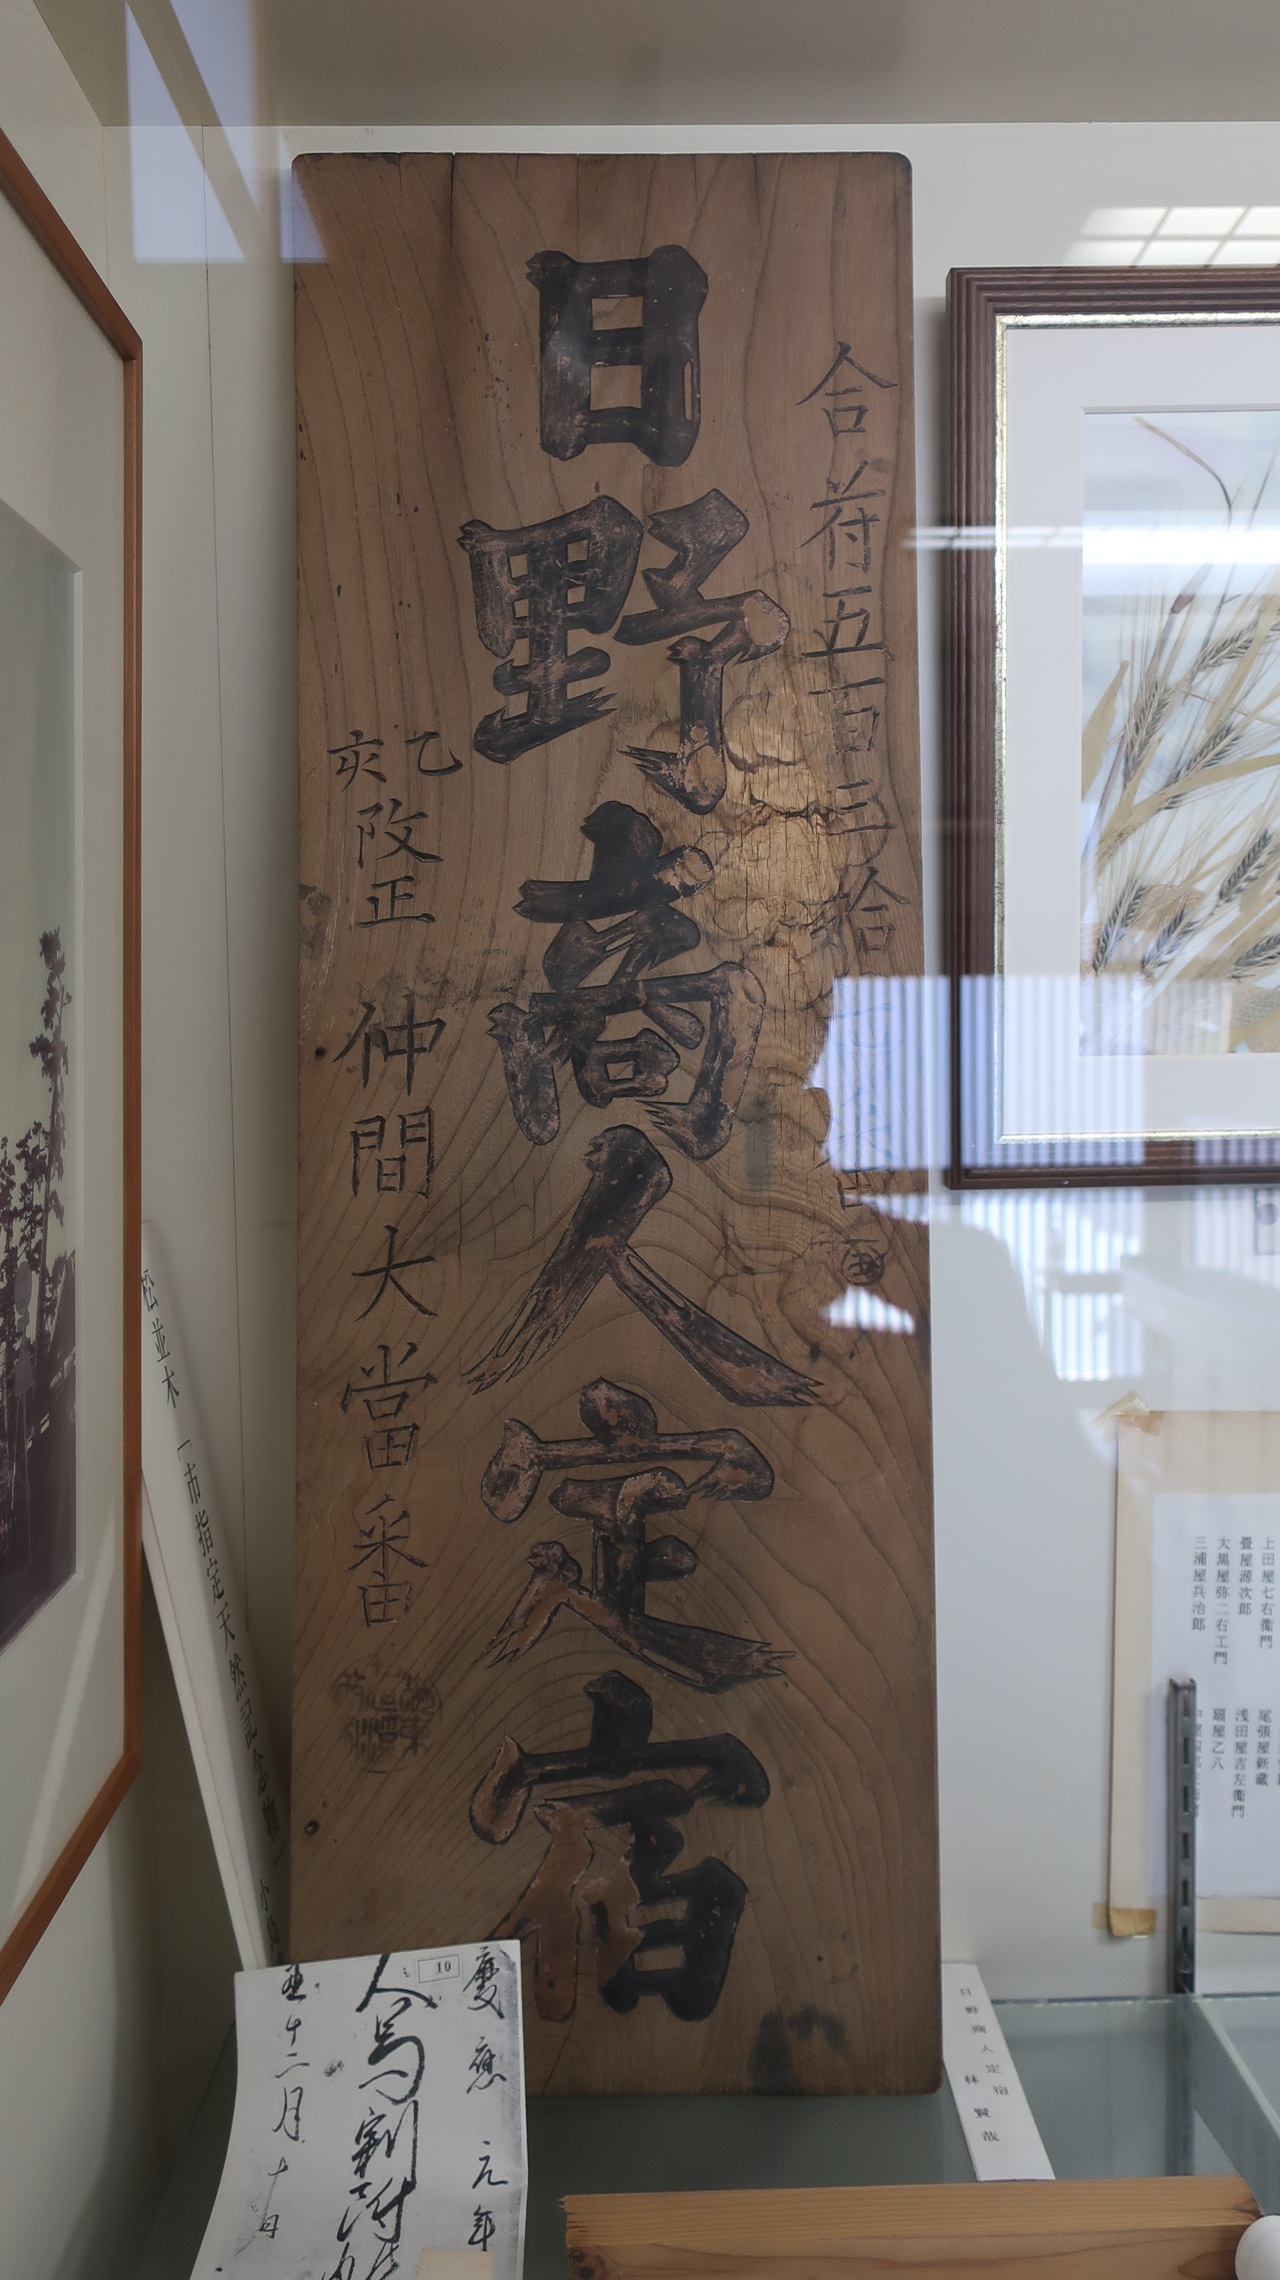 合符五百三拾
日野商人定宿
乙亥改正 仲間大當番
松並木 「市指定天然記念物」
慶應元年
人馬割附
十二月十
10
日野商人定宿
林 賢哉
上田屋七右衛門
畳屋源次郎
大黒屋弥二右エ門
三浦屋兵治郎
尾張屋新蔵
浅田屋吉左衛門
扇屋乙八